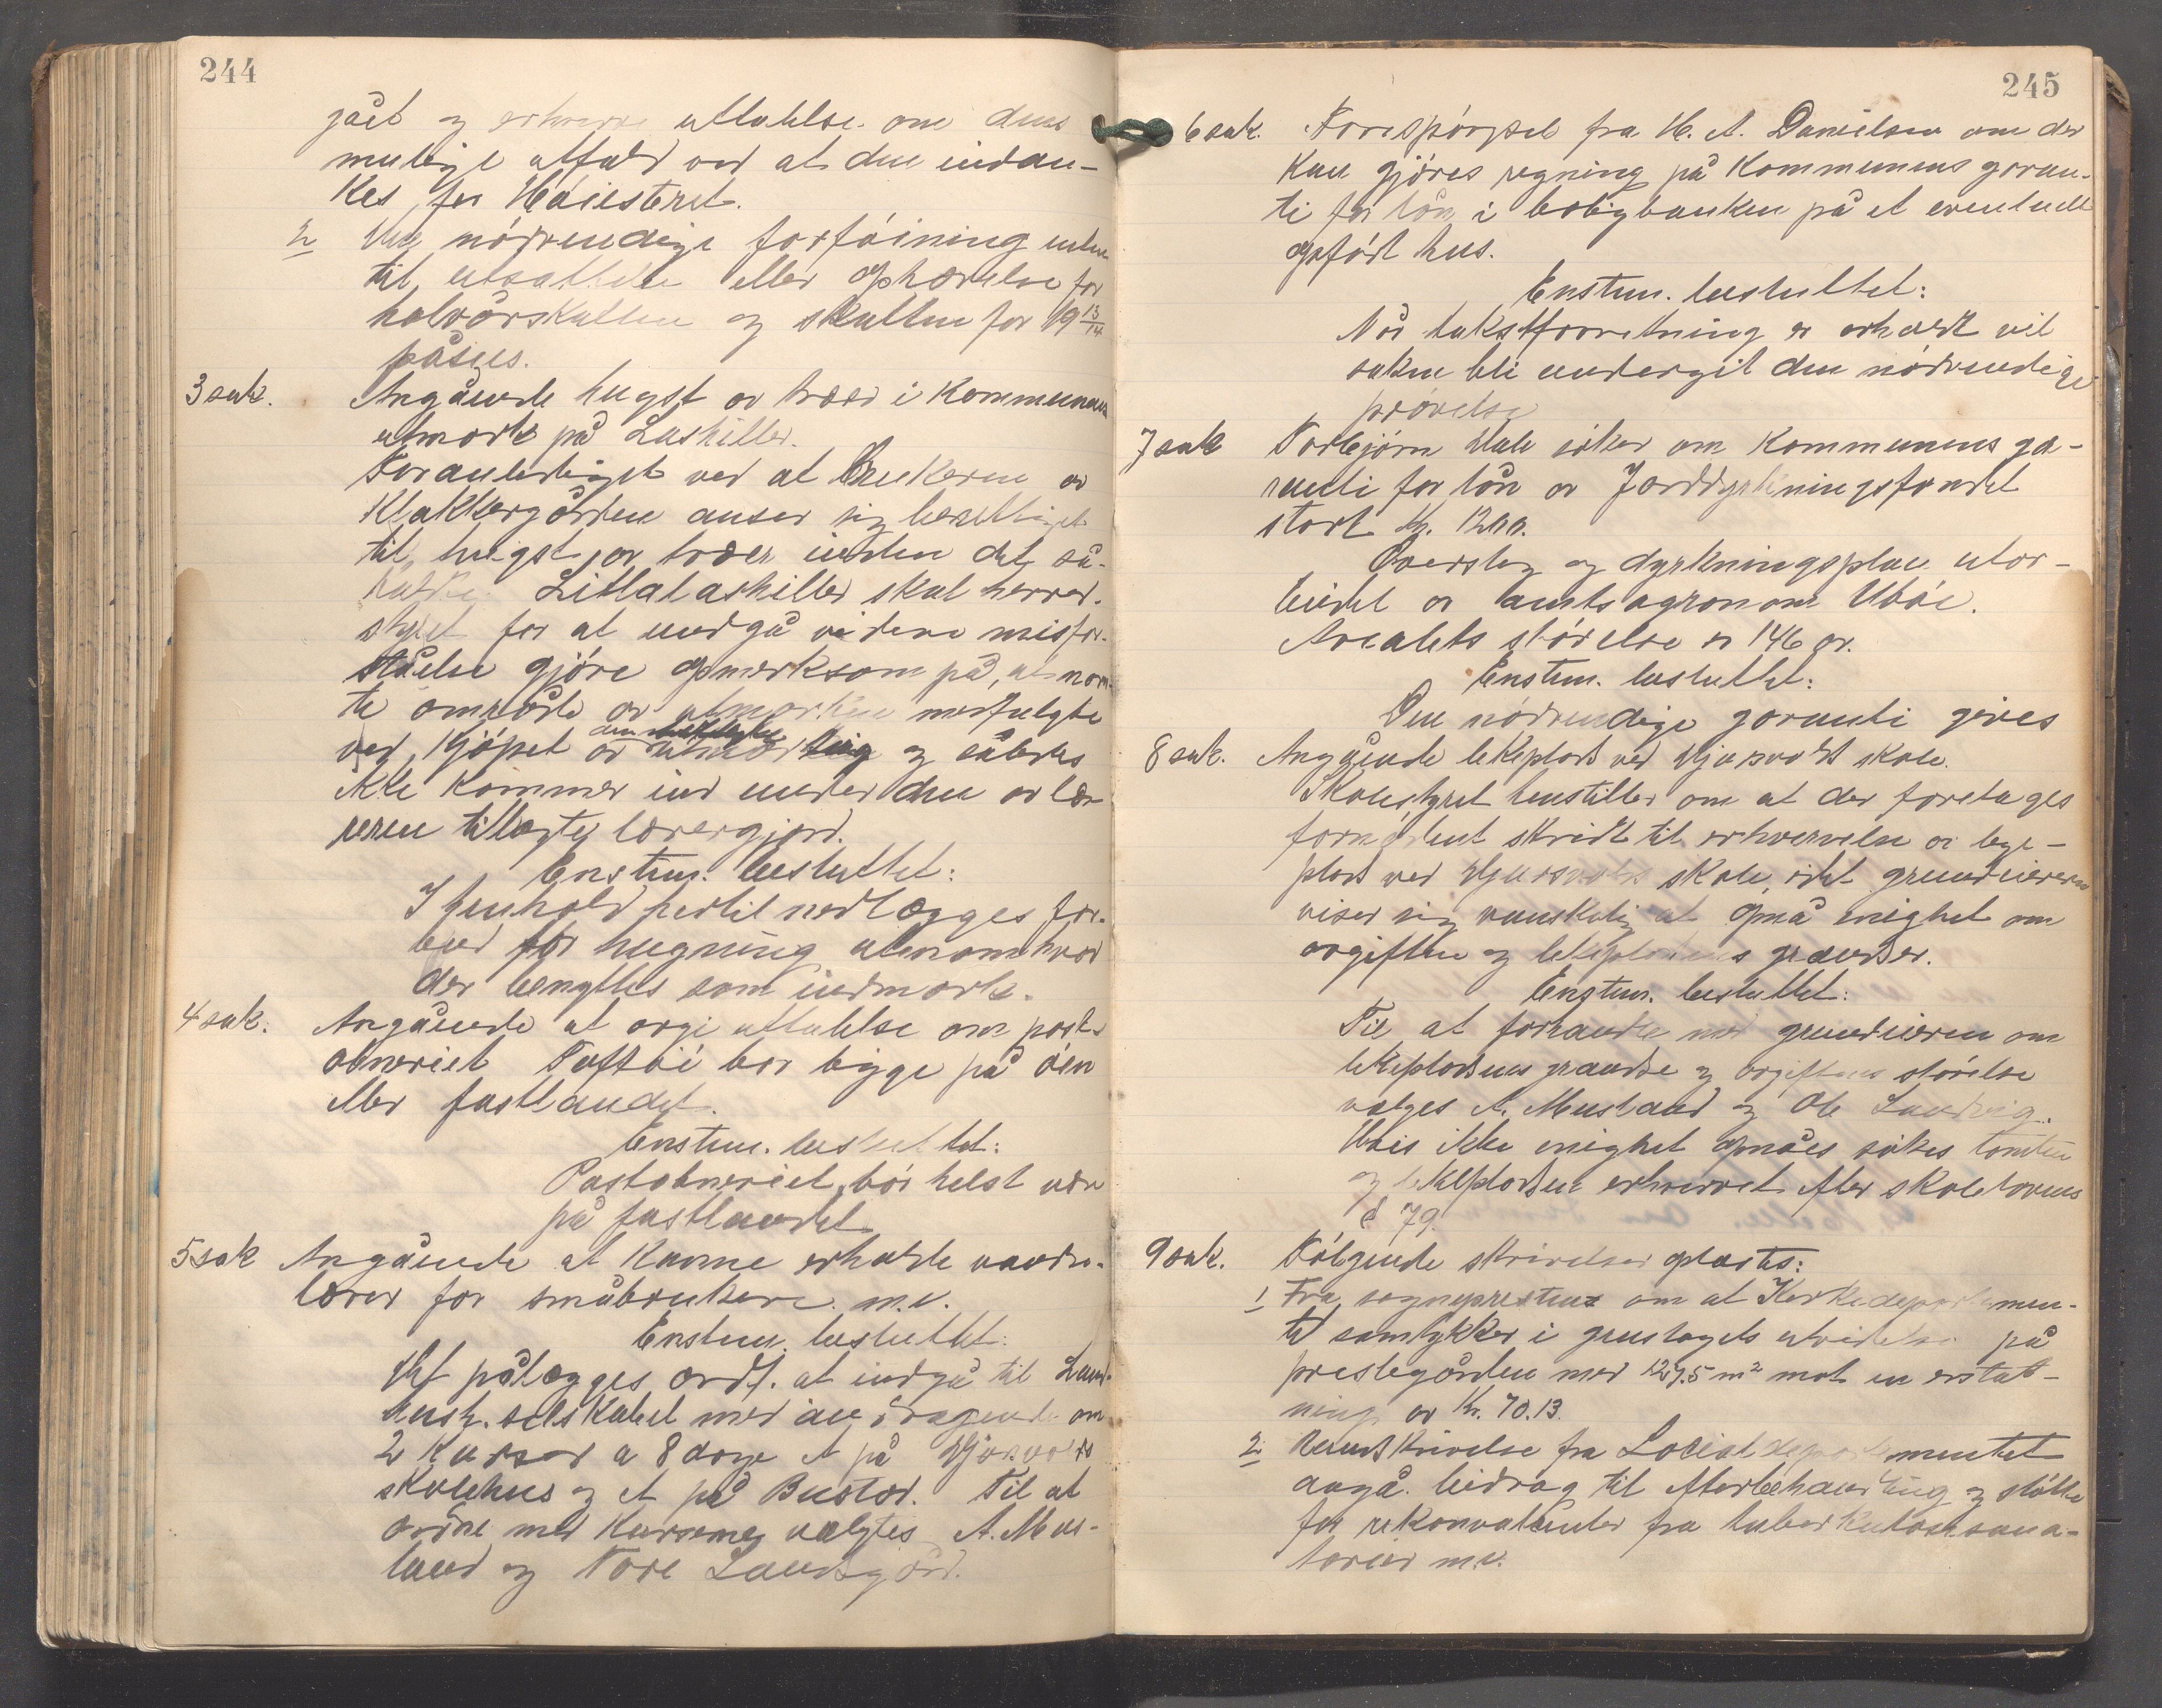 244
gået og erhverve uttalelse om dens
mulige utfald ved at den indan-
kes for Høiesteret.
2 nödvendige forföining
til utsættelse eller ophævelse for
halvårskatten og skatten for 19 13/14
påsees.
3 sak. Angående hugst av træer i Kommunens
utmark på Laskiller.
Foranlediget ved at Brukeren av
Klakkergården anser sig berettiget
til hugst av træer inden det så-
kaldte Litlalaskiller skal herred-
styret for at undgå videre misfor-
ståelse gjöre opmerksom på, at nævn-
te område av utmarken medfulgte
ved kjöpet av den og således
ikke kommer ind under den av læ-
reren tillagte lærergjord.
Enstem. besluttet:
I henhold hertil nedlægges for-
bud for hugning utenom hvad
der benyttes som indmark.
4 sak. Angående at avgi uttalelse om post-
åbneriet Toftöi bör ligge på öen
eller fastlandet.
Enstem. besluttet:
Postobneriet bör helst være
på fastlandet
5 sak Angående at kunne erholde vandre-
lærer for småbrukere m.v.
Enstem. besluttet:
Det pålægges ordf. at indgå til Land-
hush. selskabet med andragende om
2 Kurser a 8 dage et på Gjøsvolds
skolehus og et på Bustad. Til at
ordne med Kurserne valgtes A. Mus-
land og Tore Landsgård.
245
6 sak. Forespörgsel fra H. A. Danielsen om der
kan gjöres regning på Kommunens garan-
ti for lån i boligbanken på et eventuelt
opfört hus.
Enstem. besluttet:
Når takstforretning er erholdt vil
saken bli undergit den nödvendige
prövelse
7 sak Torbjörn Hale söker om Kommunens ga-
ranti for lån av Jorddyrkningsfondet
stort Kr. 1200.
Overslag og dyrkningsplan utar-
beidet av amtsagronom Uböe.
Arealets störelse er 146 ar.
Enstem. besluttet:
Den nödvendige garanti gives
8 sak. Angående lekeplads ved skole.
Skolestyret henstiller om at der foretages
fornödent skridt til erhvervelse av lege-
plads ved skole, idet grundeieren
viser sig vanskelig at opnå enighet om
avgiften og lekepladsens grændser.
Enstem. besluttet:
Til at forhandle med grundeieren om
lekepladsens grændse og avgiftens störelse
vælges A. Musland og Ole Landvig.
Hvis ikke enighet opnåes sökes tomten
og lekepladsen erhvervet efter skolelovens
§ 79.
9 sak. Fölgende skrivelser oplæstes:
1 Fra sogneprestens om at Kirkedepartemen-
tet samtykker i grustagets utvidelse på
prestegården med 127.5 m² mot en erstat-
ning av Kr. 70.13.
2 Rundskrivelse fra Socialdepartementet
angå. bidrag til efterbehandling og stötte
for rekonvalenter fra tuberkulosesana-
torier m.v.